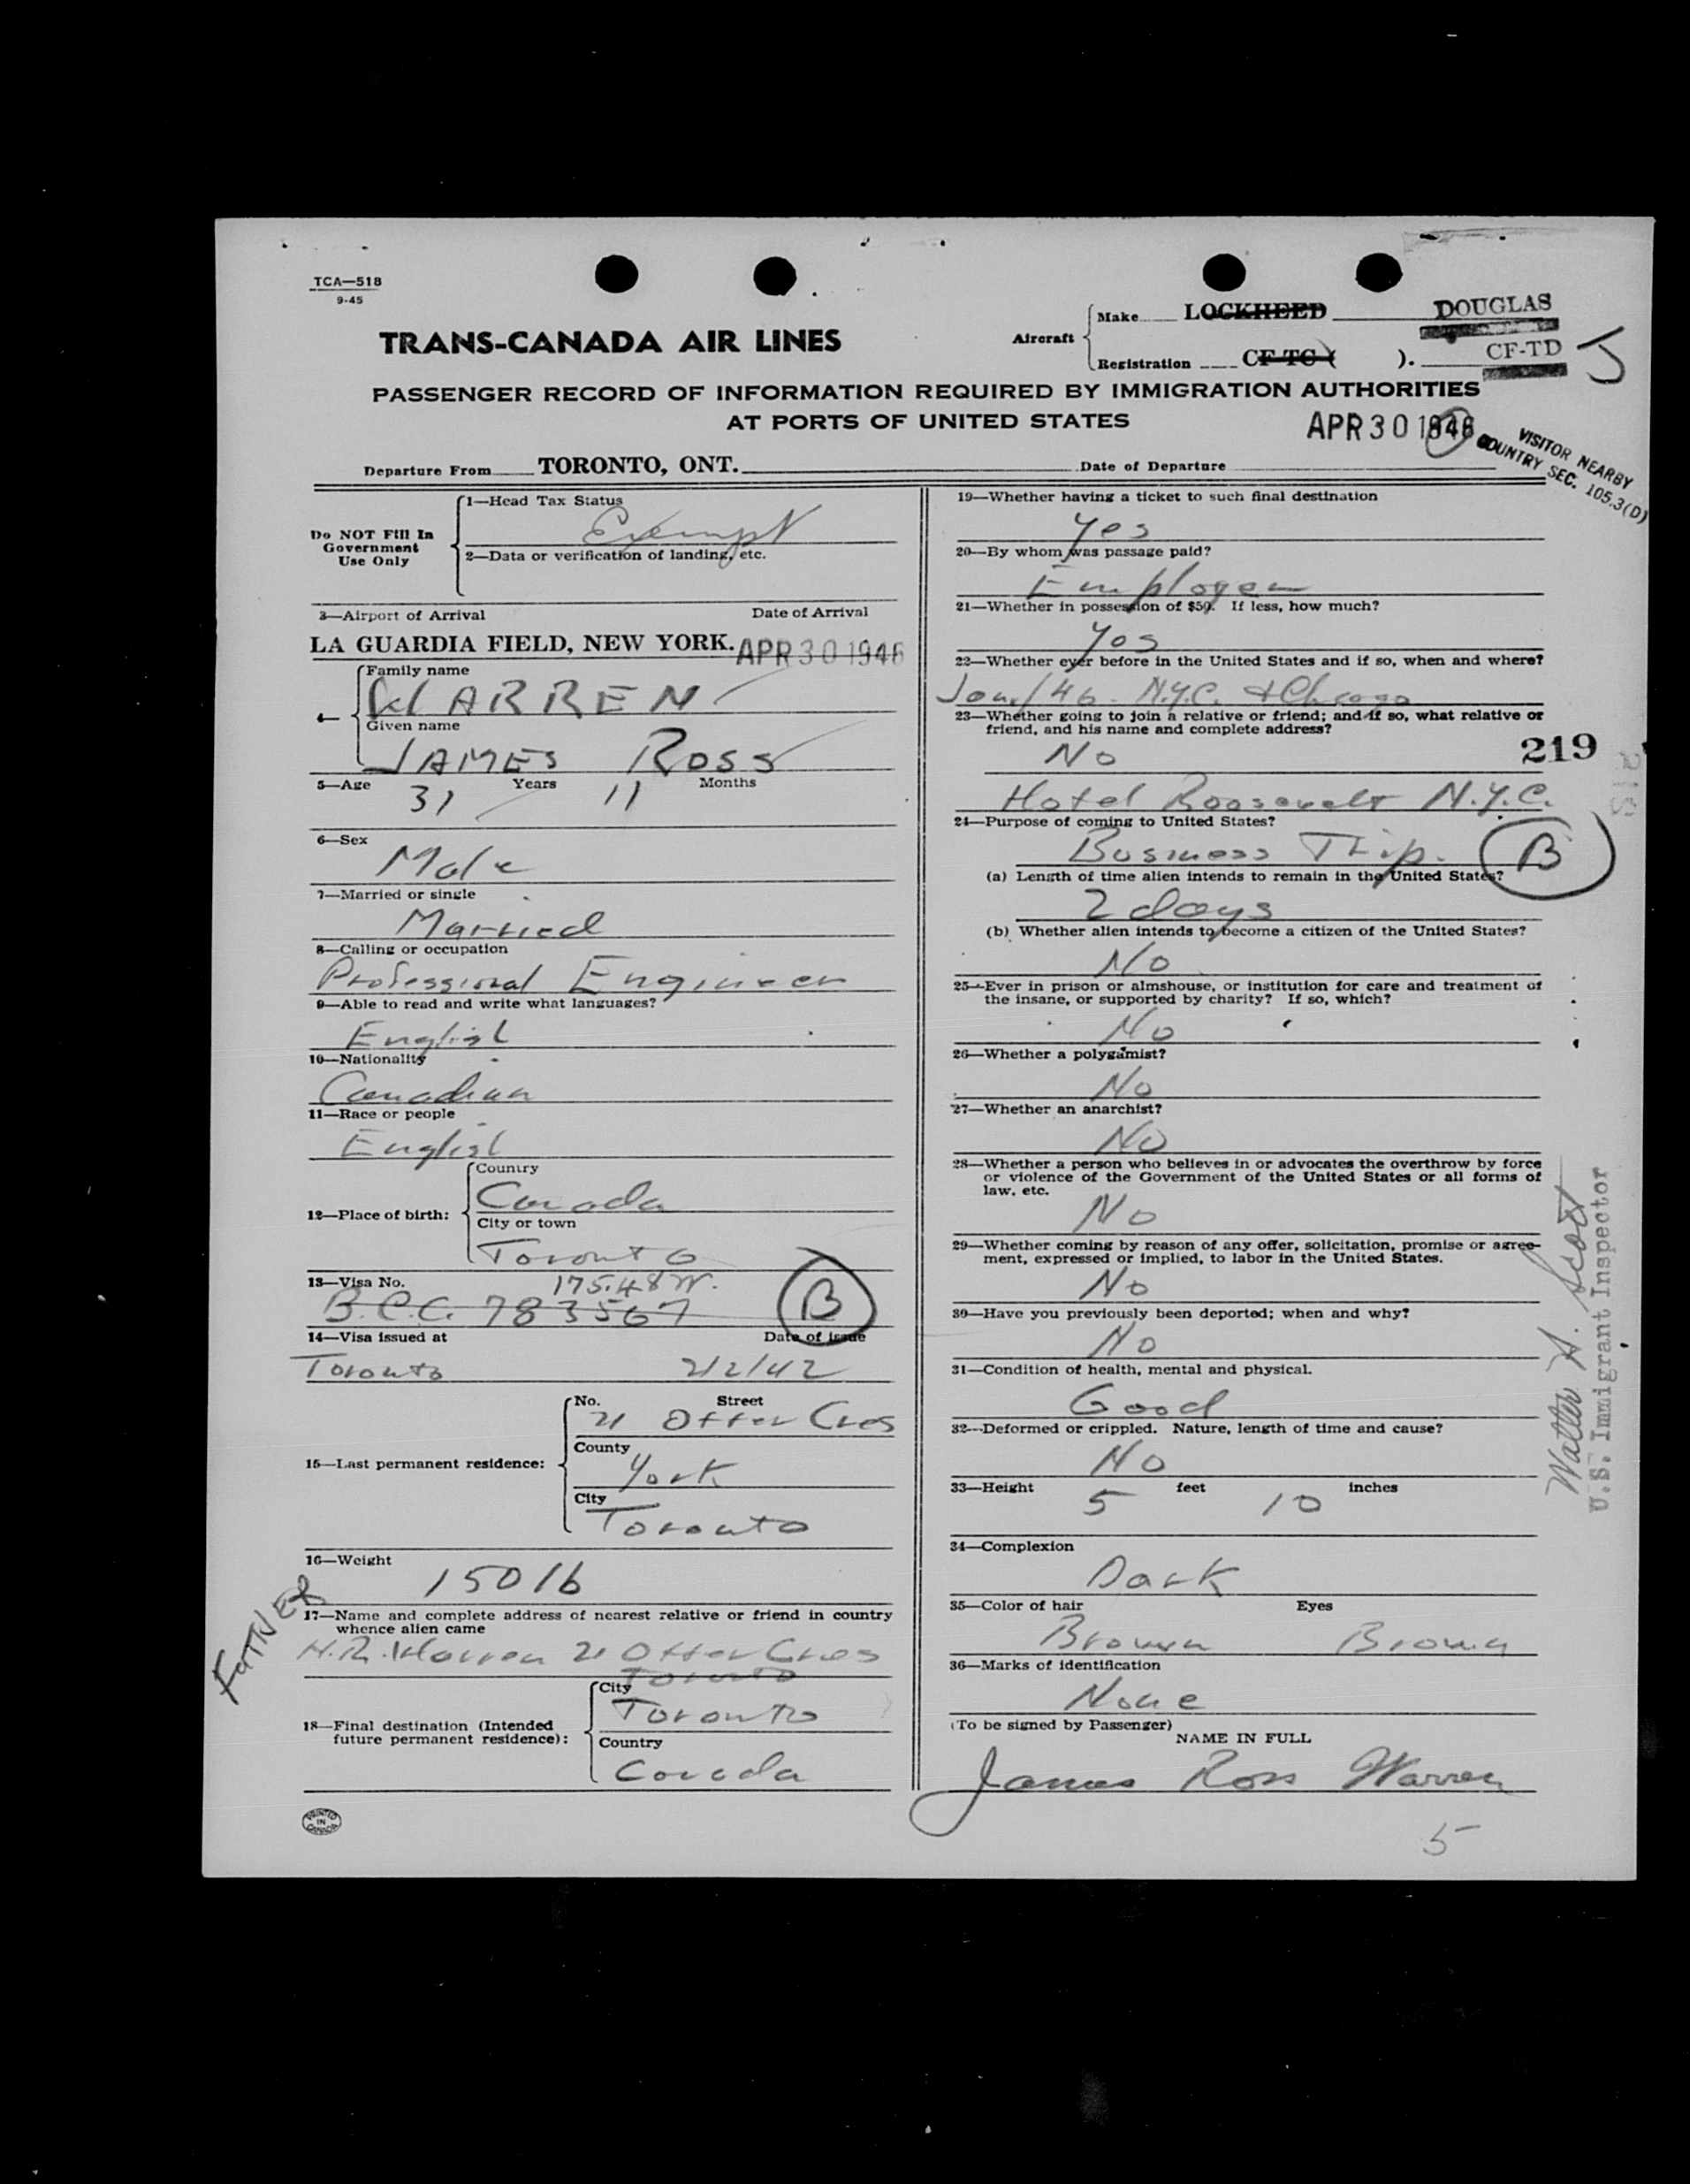 TCA—518
9-45
TRANS-CANADA AIR LINES
Aircraft
Make LOCKHEED DOUGLAS
Registration CF-TC ( ). CF-TD J
PASSENGER RECORD OF INFORMATION REQUIRED BY IMMIGRATION AUTHORITIES
AT PORTS OF UNITED STATES
APR 30 1946
VISITOR NEARBY
COUNTRY SEC. 105.3(D)
Departure From TORONTO, ONT. Date of Departure
Do NOT Fill In
Government
Use Only
1—Head Tax Status
Exempt
2—Data or verification of landing, etc.
3—Airport of Arrival Date of Arrival
LA GUARDIA FIELD, NEW YORK. APR 30 1946
4—
Family name
WARREN
Given name
JAMES ROSS
5—Age 31 Years 11 Months
6—Sex
Male
7—Married or single
Married
8—Calling or occupation
Professional Engineer
9—Able to read and write what languages?
English
10—Nationality
Canadian
11—Race or people
English
12—Place of birth:
Country
Canada
City or town
Toronto
13—Visa No. 175.48 W.
B.C.C. 783567
B
14—Visa issued at Date of issue
Toronto 2/2/42
15—Last permanent residence:
No. Street
21 Otter Cres
County
York
City
Toronto
16—Weight
150 lb
FATHER
17—Name and complete address of nearest relative or friend in country
whence alien came
H.R. Warren 21 Otter Cres
Toronto
18—Final destination (Intended
future permanent residence):
City
Toronto
Country
Canada
PRINTED
IN
CANADA
19—Whether having a ticket to such final destination
Yes
20—By whom was passage paid?
Employer
21—Whether in possession of $50. If less, how much?
Yes
22—Whether ever before in the United States and if so, when and where?
Jan./46 - N.Y.C. & Chicago
23—Whether going to join a relative or friend; and if so, what relative or
friend, and his name and complete address?
No
219
Hotel Roosevelt N.Y.C.
24—Purpose of coming to United States?
Business Trip.
B
(a) Length of time alien intends to remain in the United States?
2 days
(b) Whether alien intends to become a citizen of the United States?
No
25—Ever in prison or almshouse, or institution for care and treatment of
the insane, or supported by charity? If so, which?
No
26—Whether a polygamist?
No
27—Whether an anarchist?
No
28—Whether a person who believes in or advocates the overthrow by force
or violence of the Government of the United States or all forms of
law, etc.
No
29—Whether coming by reason of any offer, solicitation, promise or agree-
ment, expressed or implied, to labor in the United States.
No
30—Have you previously been deported; when and why?
No
31—Condition of health, mental and physical.
Good
32—Deformed or crippled. Nature, length of time and cause?
No
33—Height 5 feet 10 inches
34—Complexion
Dark
35—Color of hair Eyes
Brown Brown
36—Marks of identification
None
(To be signed by Passenger)
NAME IN FULL
James Ross Warren
5
Walter A. Scott
U.S. Immigrant Inspector